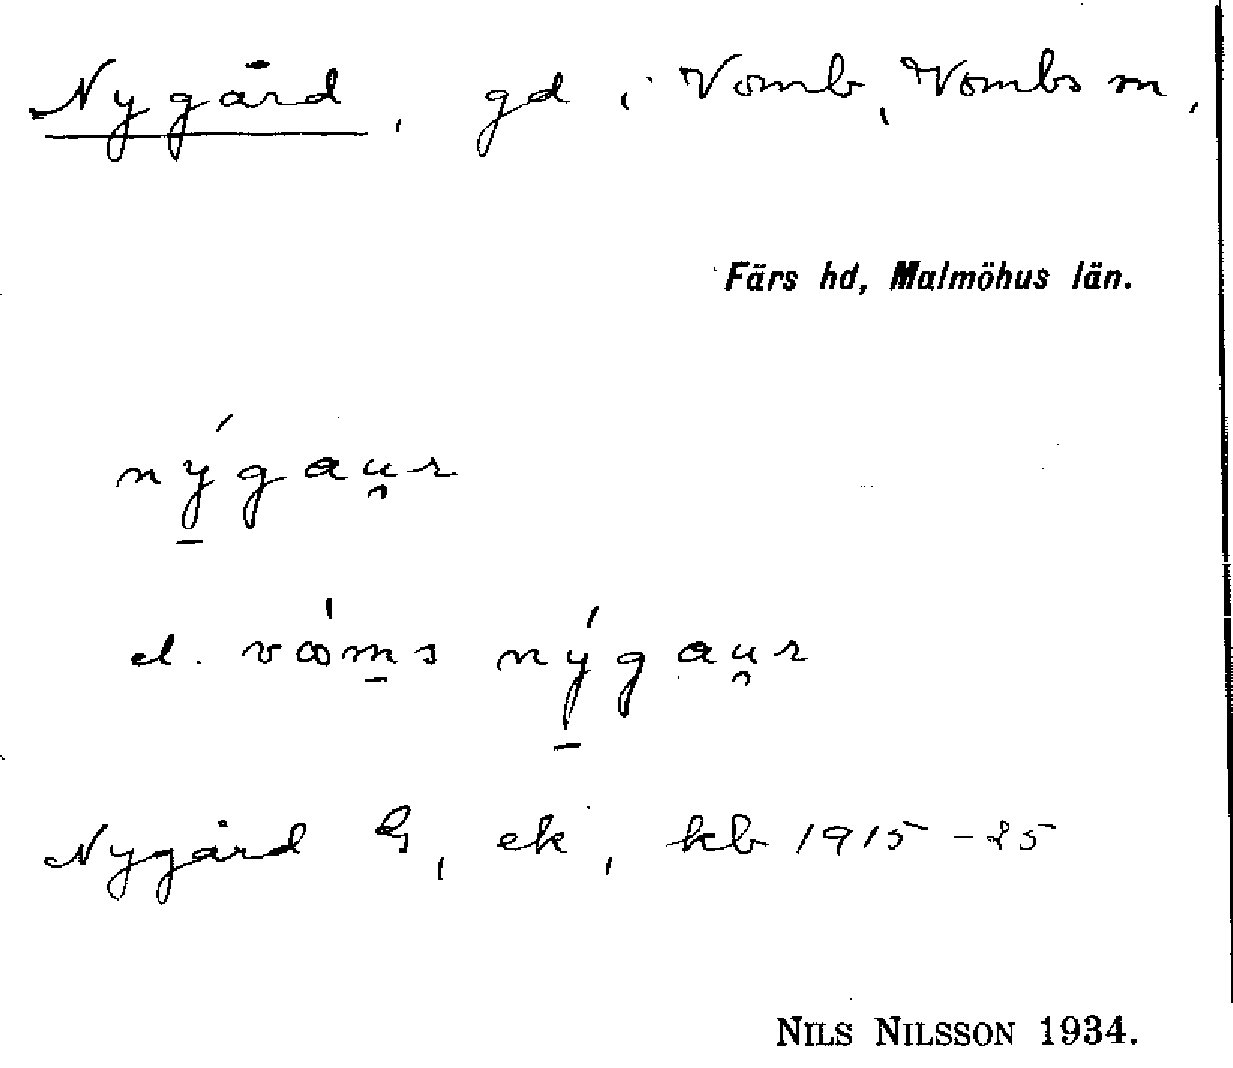 Nygård, gd i Vomb, Vombs sn,
Färs hd, Malmöhus län.
nýgau̯r
el. vꝏ́ms nýgau̯r
Nygård G, ek, kb 1915-25
NILS NILSSON 1934.